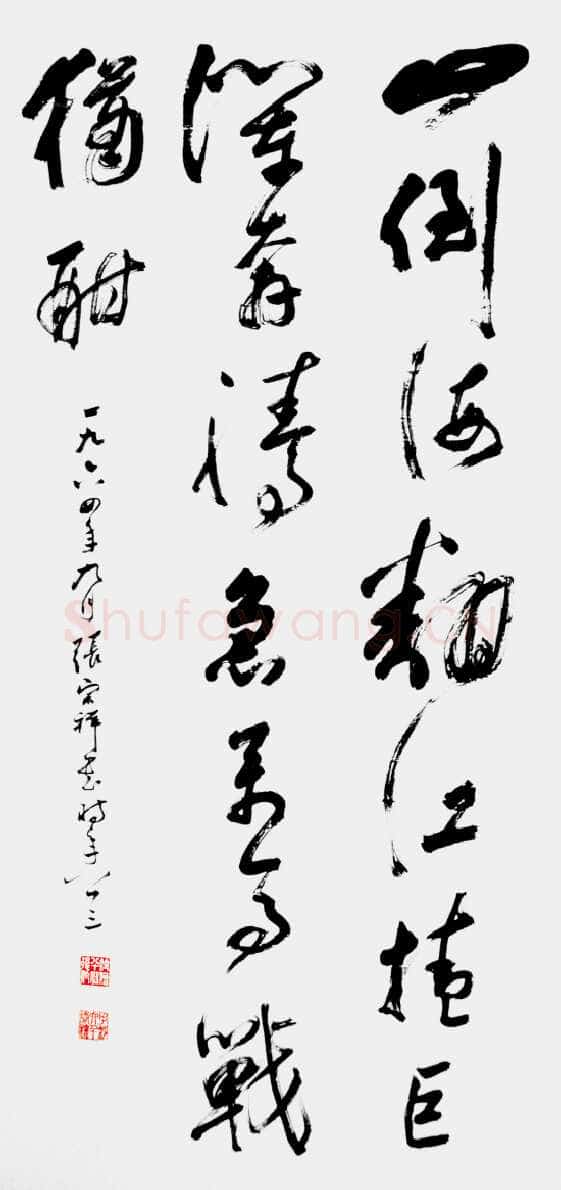 山倒海翻江捲巨
瀾奔騰急萬馬戰
猶酣
一九六四年九月張宗祥書時年八十三
Shufawang.CN